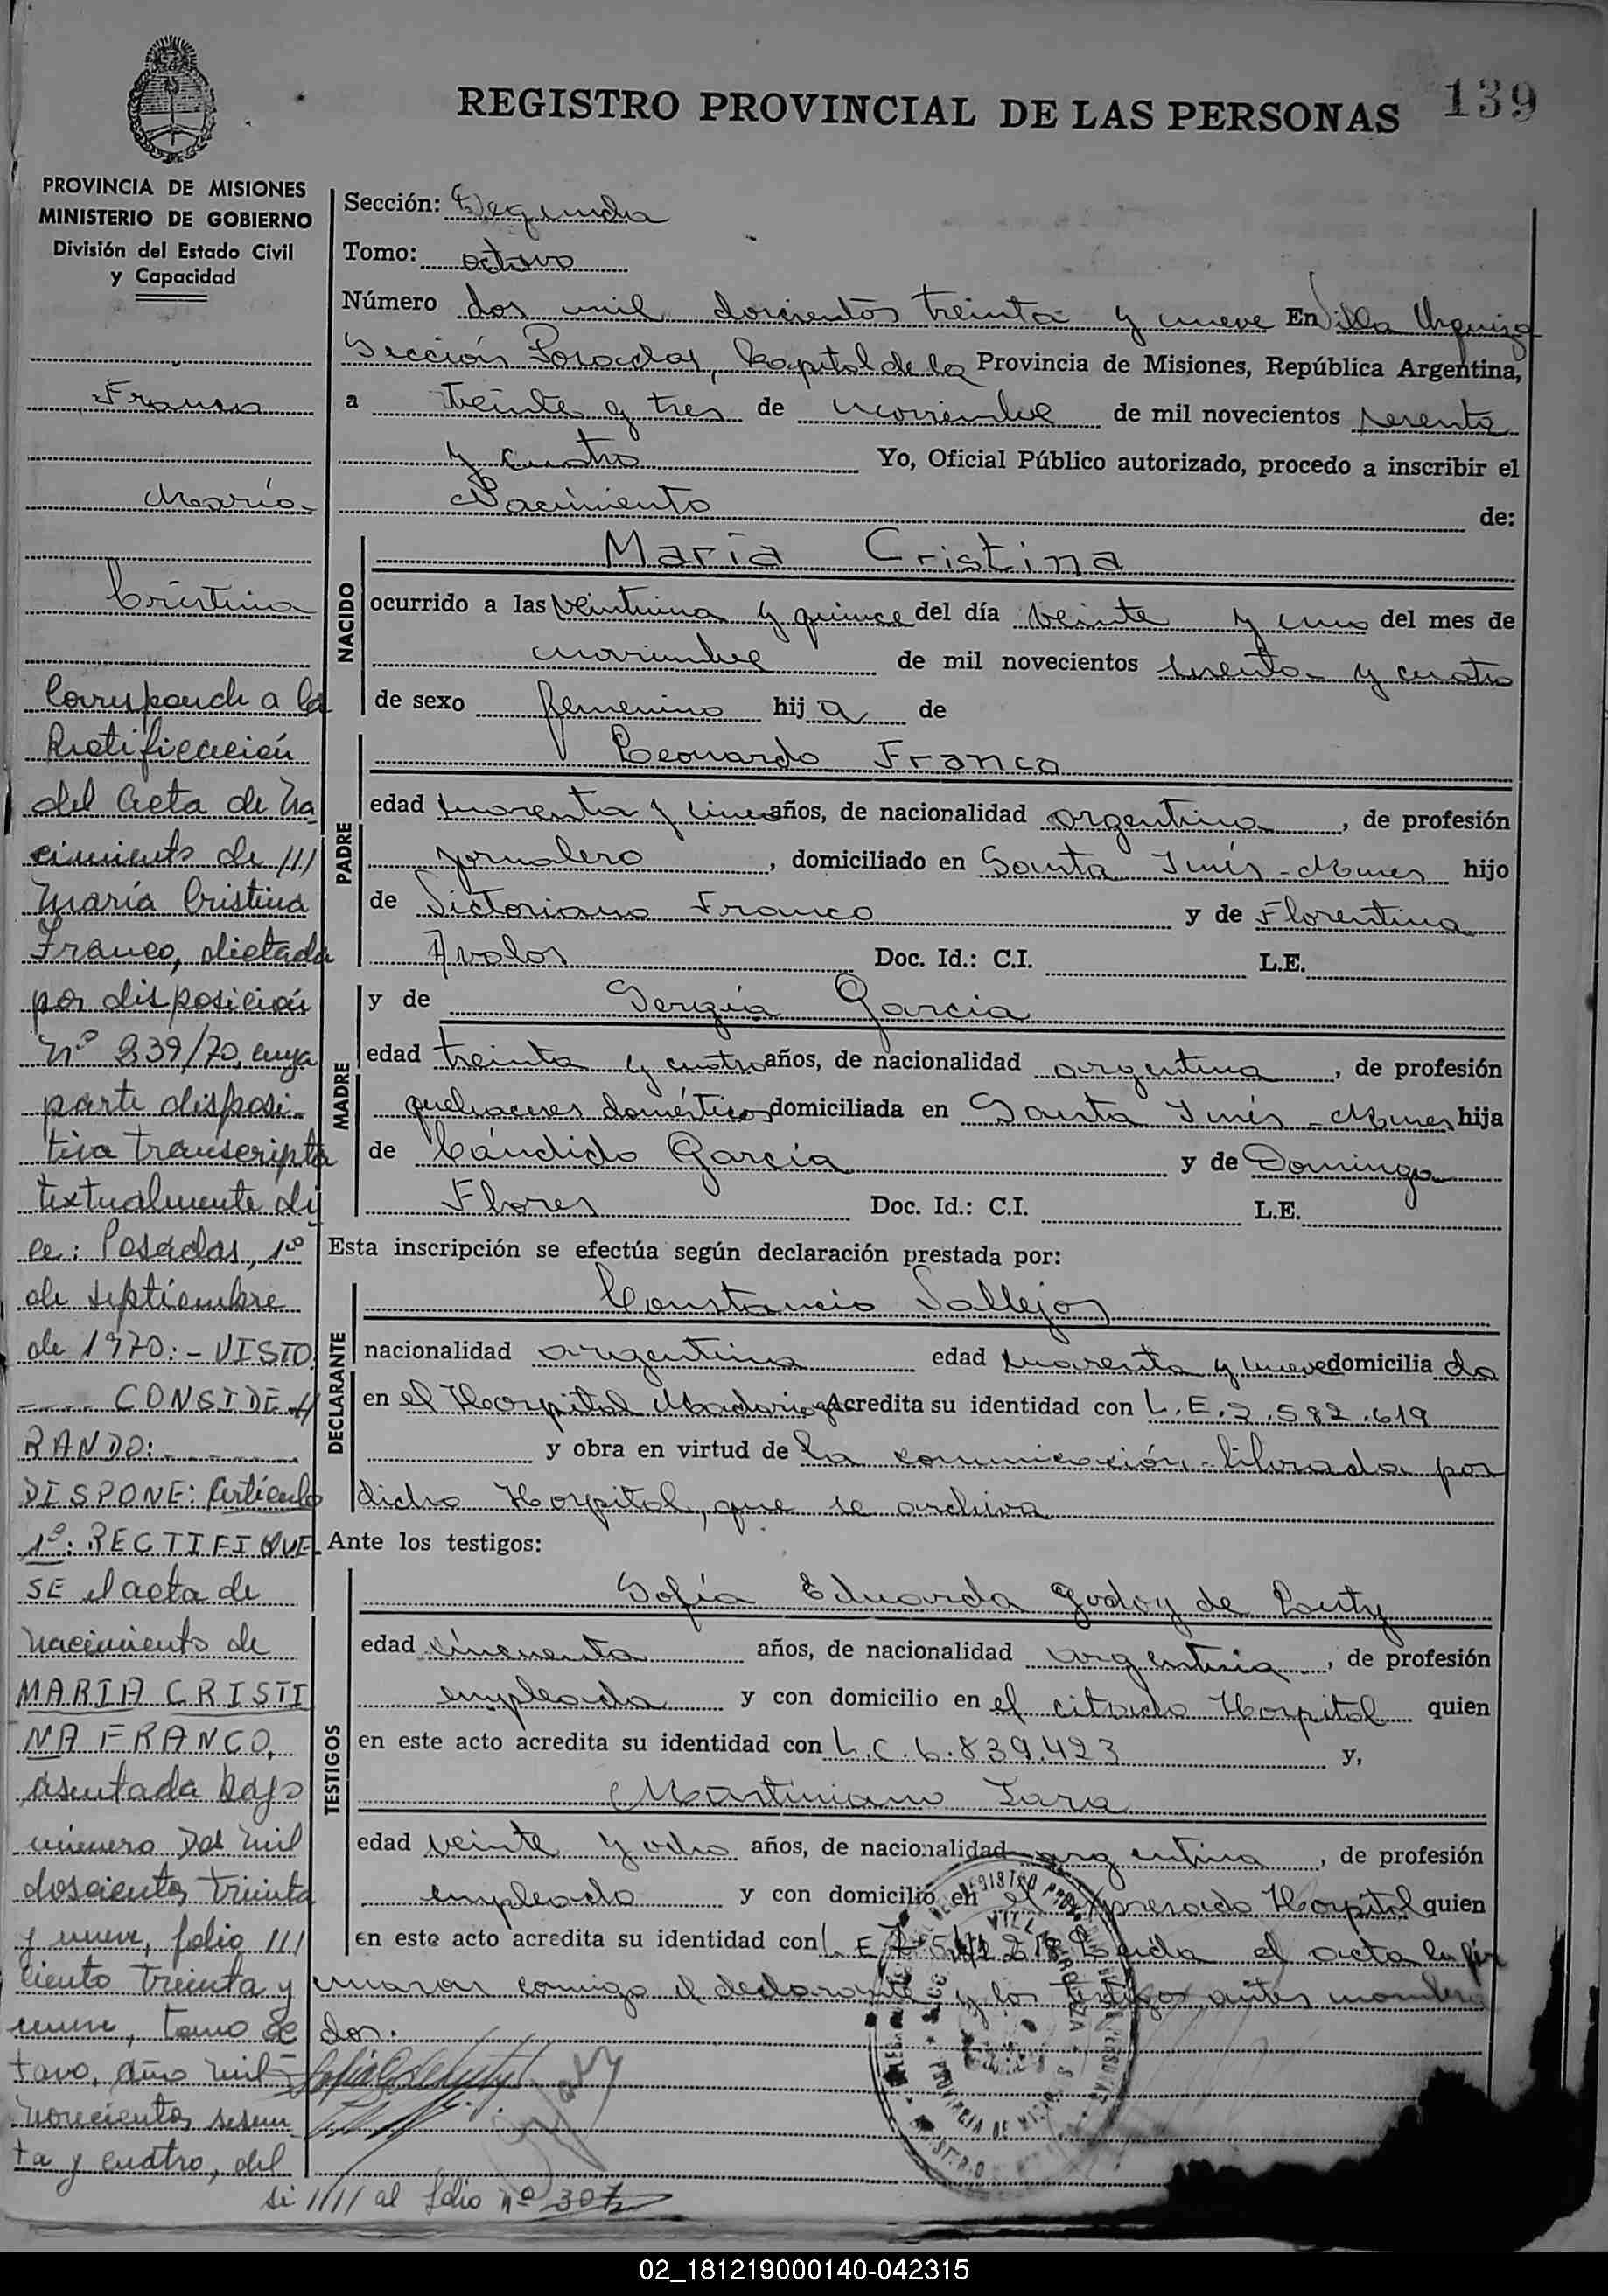 139
REGISTRO PROVINCIAL DE LAS PERSONAS
PROVINCIA DE MISIONES
MINISTERIO DE GOBIERNO
División del Estado Civil
y Capacidad
Franco
María
Cristina
Corresponde a la
Rectificación
del acta de Na
cimiento de ///
María Cristina
Franco, dictada
por disposición
Nº 239/70, cuya
parte disposi-
tiva transcripta
textualmente di
ce: Posadas, 1º
de septiembre
de 1970: - VISTO
---- CONSIDE //
RANDO: ------
DISPONE: Artículo
1º: RECTIFIQUE
SE el acta de
nacimiento de
MARIA CRISTI
NA FRANCO,
asentada bajo
número Dos mil
doscientos treinta
y nueve, folio ///
ciento treinta y
nueve, tomo oc
tavo, año mil
novecientos sesen
ta y cuatro, del
si //// al folio nº 307
Sección: Segunda
Tomo: octavo
Número dos mil doscientos treinta y nueve En Villa Urquiza
Sección Posadas, Capital de la Provincia de Misiones, República Argentina,
a veinte y tres de noviembre de mil novecientos sesenta
y cuatro Yo, Oficial Público autorizado, procedo a inscribir el
Nacimiento de:
NACIDO
María Cristina
ocurrido a las veintiuna y quince del día veinte y uno del mes de
noviembre de mil novecientos sesenta y cuatro
de sexo femenino hij a de
PADRE
Leonardo Franco
edad cuarenta y cinco años, de nacionalidad argentina, de profesión
jornalero, domiciliado en Santa Inés - Mnes hijo
de Victoriano Franco y de Florentina
Avalos Doc. Id.: C.I. L.E.
MADRE
y de Sergia Garcia
edad treinta y cuatro años, de nacionalidad argentina, de profesión
quehaceres domésticos domiciliada en Santa Inés - Mnes hija
de Cándido García y de Dominga
Flores Doc. Id.: C.I. L.E.
Esta inscripción se efectúa según declaración prestada por:
DECLARANTE
Constancio Vallejos
nacionalidad argentina edad cuarenta y nueve domicilia do
en el Hospital Madariaga Acredita su identidad con L.E. 3.582.619
y obra en virtud de la comunicación librada por
dicho Hospital, que se archiva
Ante los testigos:
TESTIGOS
Sofía Eduarda Godoy de
edad cincuenta años, de nacionalidad argentina, de profesión
empleada y con domicilio en el citado Hospital quien
en este acto acredita su identidad con L.C. 6.839.423 y,
Martiniano Jara
edad veinte y ocho años, de nacionalidad argentina, de profesión
empleado y con domicilio en el expresado Hospital quien
en este acto acredita su identidad con L.E. Leida el acta la fir
maron conmigo el declarante y los testigos antes nombra
dos.
02_181219000140-042315